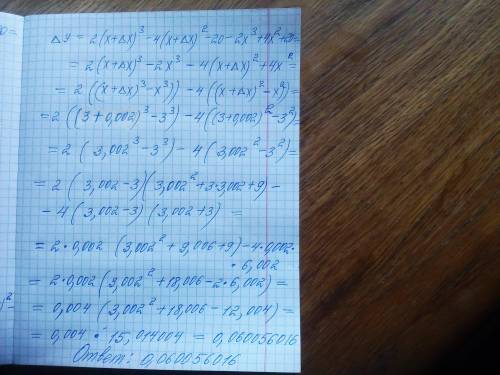 ΔY = 2(x+Δx)³-4(x+Δx)²-20-2x³+4x²+20=
= 2(x+Δx)³-2x³-4(x+Δx)²+4x²=
= 2((x+Δx)³-x³)-4((x+Δx)²-x²)=
= 2((3+0,002)³-3³)-4((3+0,002)²-3²)=
= 2(3,002³-3³)-4(3,002²-3²)=
= 2(3,002-3)(3,002²+3·3,002+9)-
-4(3,002-3)(3,002+3) =
= 2·0,002 (3,002²+9,006+9)-4·0,002·
·6,002
= 2·0,002(3,002²+18,006-2·6,002)=
= 0,004(3,002²+18,006-12,004)=
= 0,004·15,014004 = 0,060056016
Ответ: 0,060056016